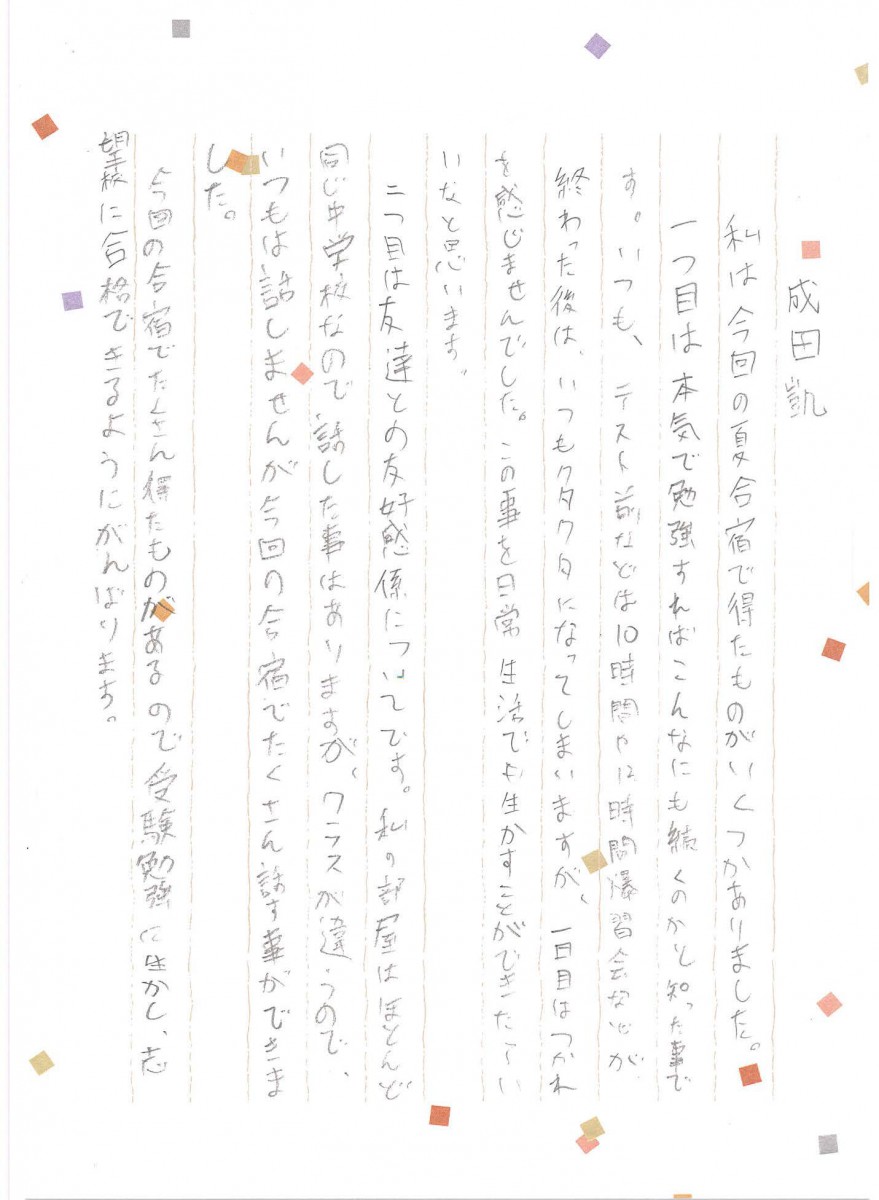 成田凱
私は今回の夏合宿で得たものがいくつかありました。
一つ目は本気で勉強すればこんなにも続くのかと知った事で
す。いつも、テスト前などは10時間や12時間爆習会などが
終わった後は、いつもクタクタになってしまいますが、一日目はつかれ
を感じませんでした。この事を日常生活でも生かすことができたらい
いなと思います。
二つ目は友達との友好感係についてです。私の部屋はほとんど
同じ中学校なので話した事はありますが、クラスが違うので、
いつもは話しませんが今回の合宿でたくさん話す事ができま
した。
今回の合宿でたくさん得たものがあるので受験勉強に生かし、志
望校に合格できるようにがんばります。